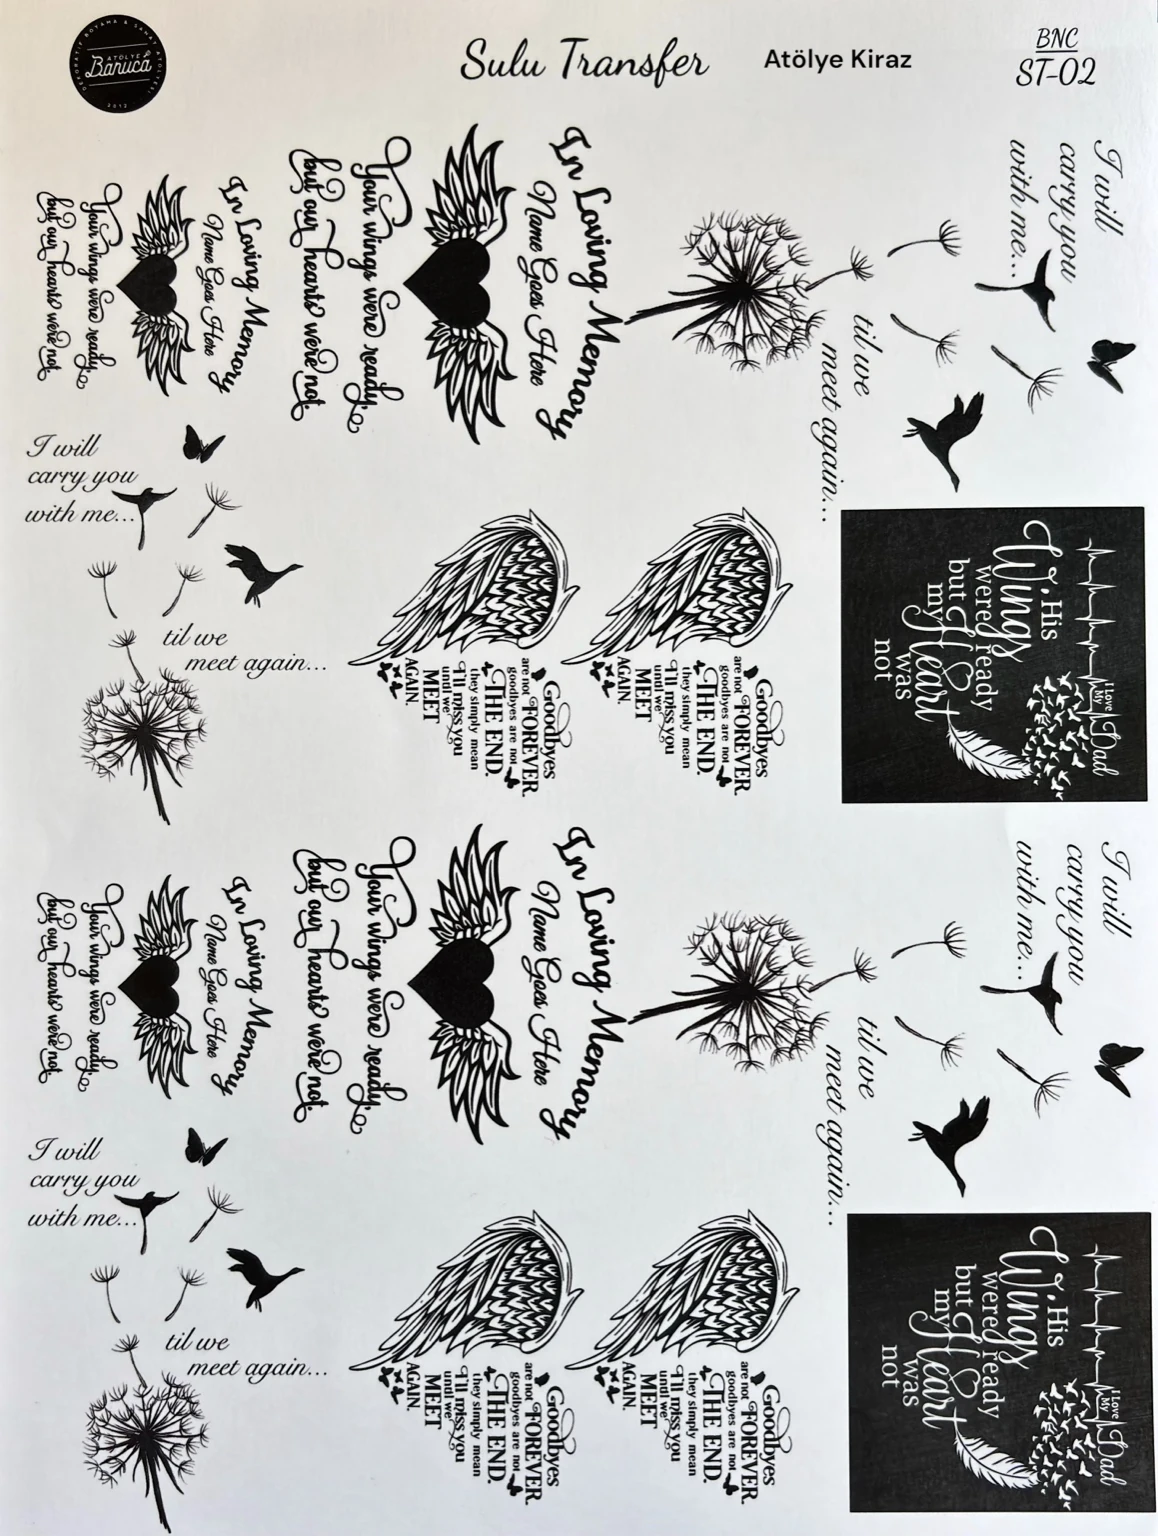 DEKORATİF BOYAMA & SANAT ATÖLYESİ
ATÖLYE
Banuca
2012
Sulu Transfer
Atölye Kiraz
BNC
ST-02
In Loving Memory
Name Goes Here
Your wings were ready,
but our hearts were not.
In Loving Memory
Name Goes Here
Your wings were ready,
but our hearts were not.
I will
carry you
with me...
til we
meet again...
I will
carry you
with me...
til we
meet again...
Goodbyes
are not FOREVER.
goodbyes are not
THE END.
they simply mean
I'll miss you
until we
MEET
AGAIN.
Goodbyes
are not FOREVER.
goodbyes are not
THE END.
they simply mean
I'll miss you
until we
MEET
AGAIN.
I Love
My Dad
His
Wings
were ready
but
my Heart
was
not
In Loving Memory
Name Goes Here
Your wings were ready,
but our hearts were not.
In Loving Memory
Name Goes Here
Your wings were ready,
but our hearts were not.
I will
carry you
with me...
til we
meet again...
I will
carry you
with me...
til we
meet again...
Goodbyes
are not FOREVER.
goodbyes are not
THE END.
they simply mean
I'll miss you
until we
MEET
AGAIN.
Goodbyes
are not FOREVER.
goodbyes are not
THE END.
they simply mean
I'll miss you
until we
MEET
AGAIN.
I Love
My Dad
His
Wings
were ready
but
my Heart
was
not